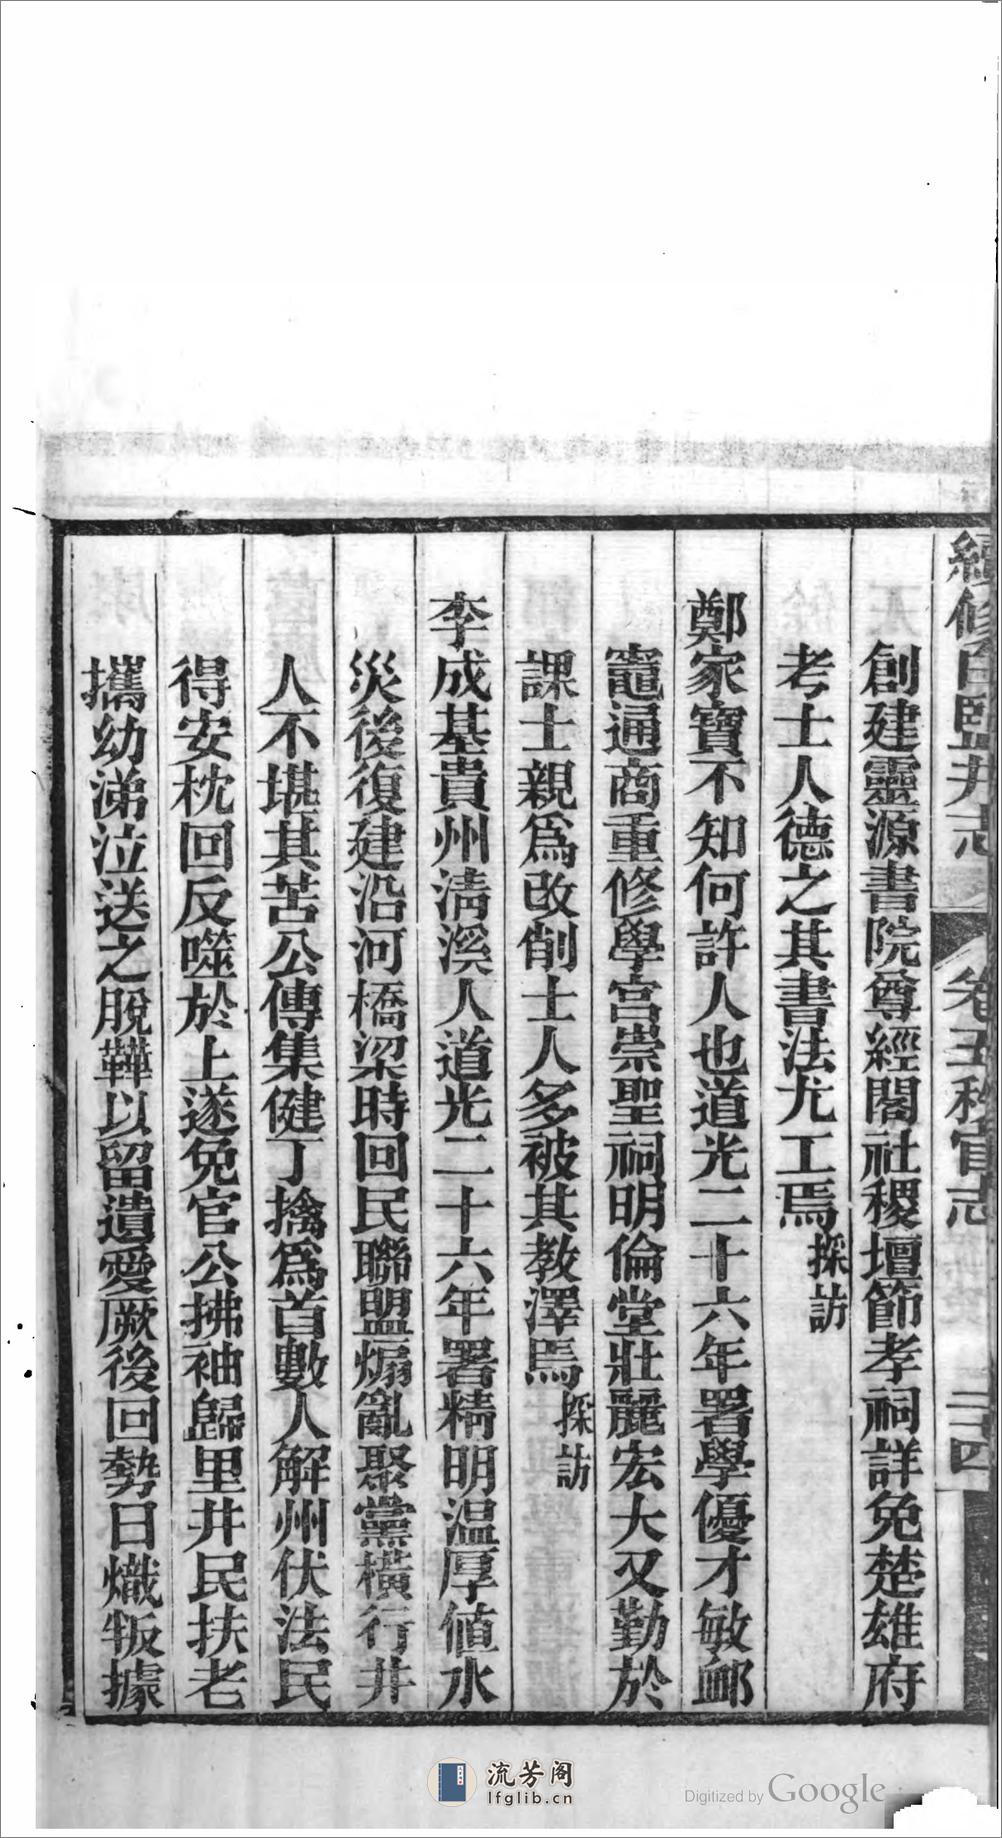 續修白鹽井志 卷五秩官志 二十四
創建靈源書院尊經閣社稷壇節孝祠詳免楚雄府
考士人德之其書法尤工焉採訪
鄭家寶不知何許人也道光二十六年署學優才敏卹
竈通商重修學宮崇聖祠明倫堂壯麗宏大又勤於
課士親爲改削士人多被其教澤焉採訪
李成基貴州淸溪人道光二十六年署精明溫厚値水
災後復建沿河橋梁時回民聯盟煽亂聚黨橫行井
人不堪其苦公傳集健丁擒爲首數人解州伏法民
得安枕回反噬於上遂免官公拂袖歸里井民扶老
攜幼涕泣送之脫鞾以留遺愛厥後回勢日熾叛據
流芳阁
lfglib.cn
Digitized by Google